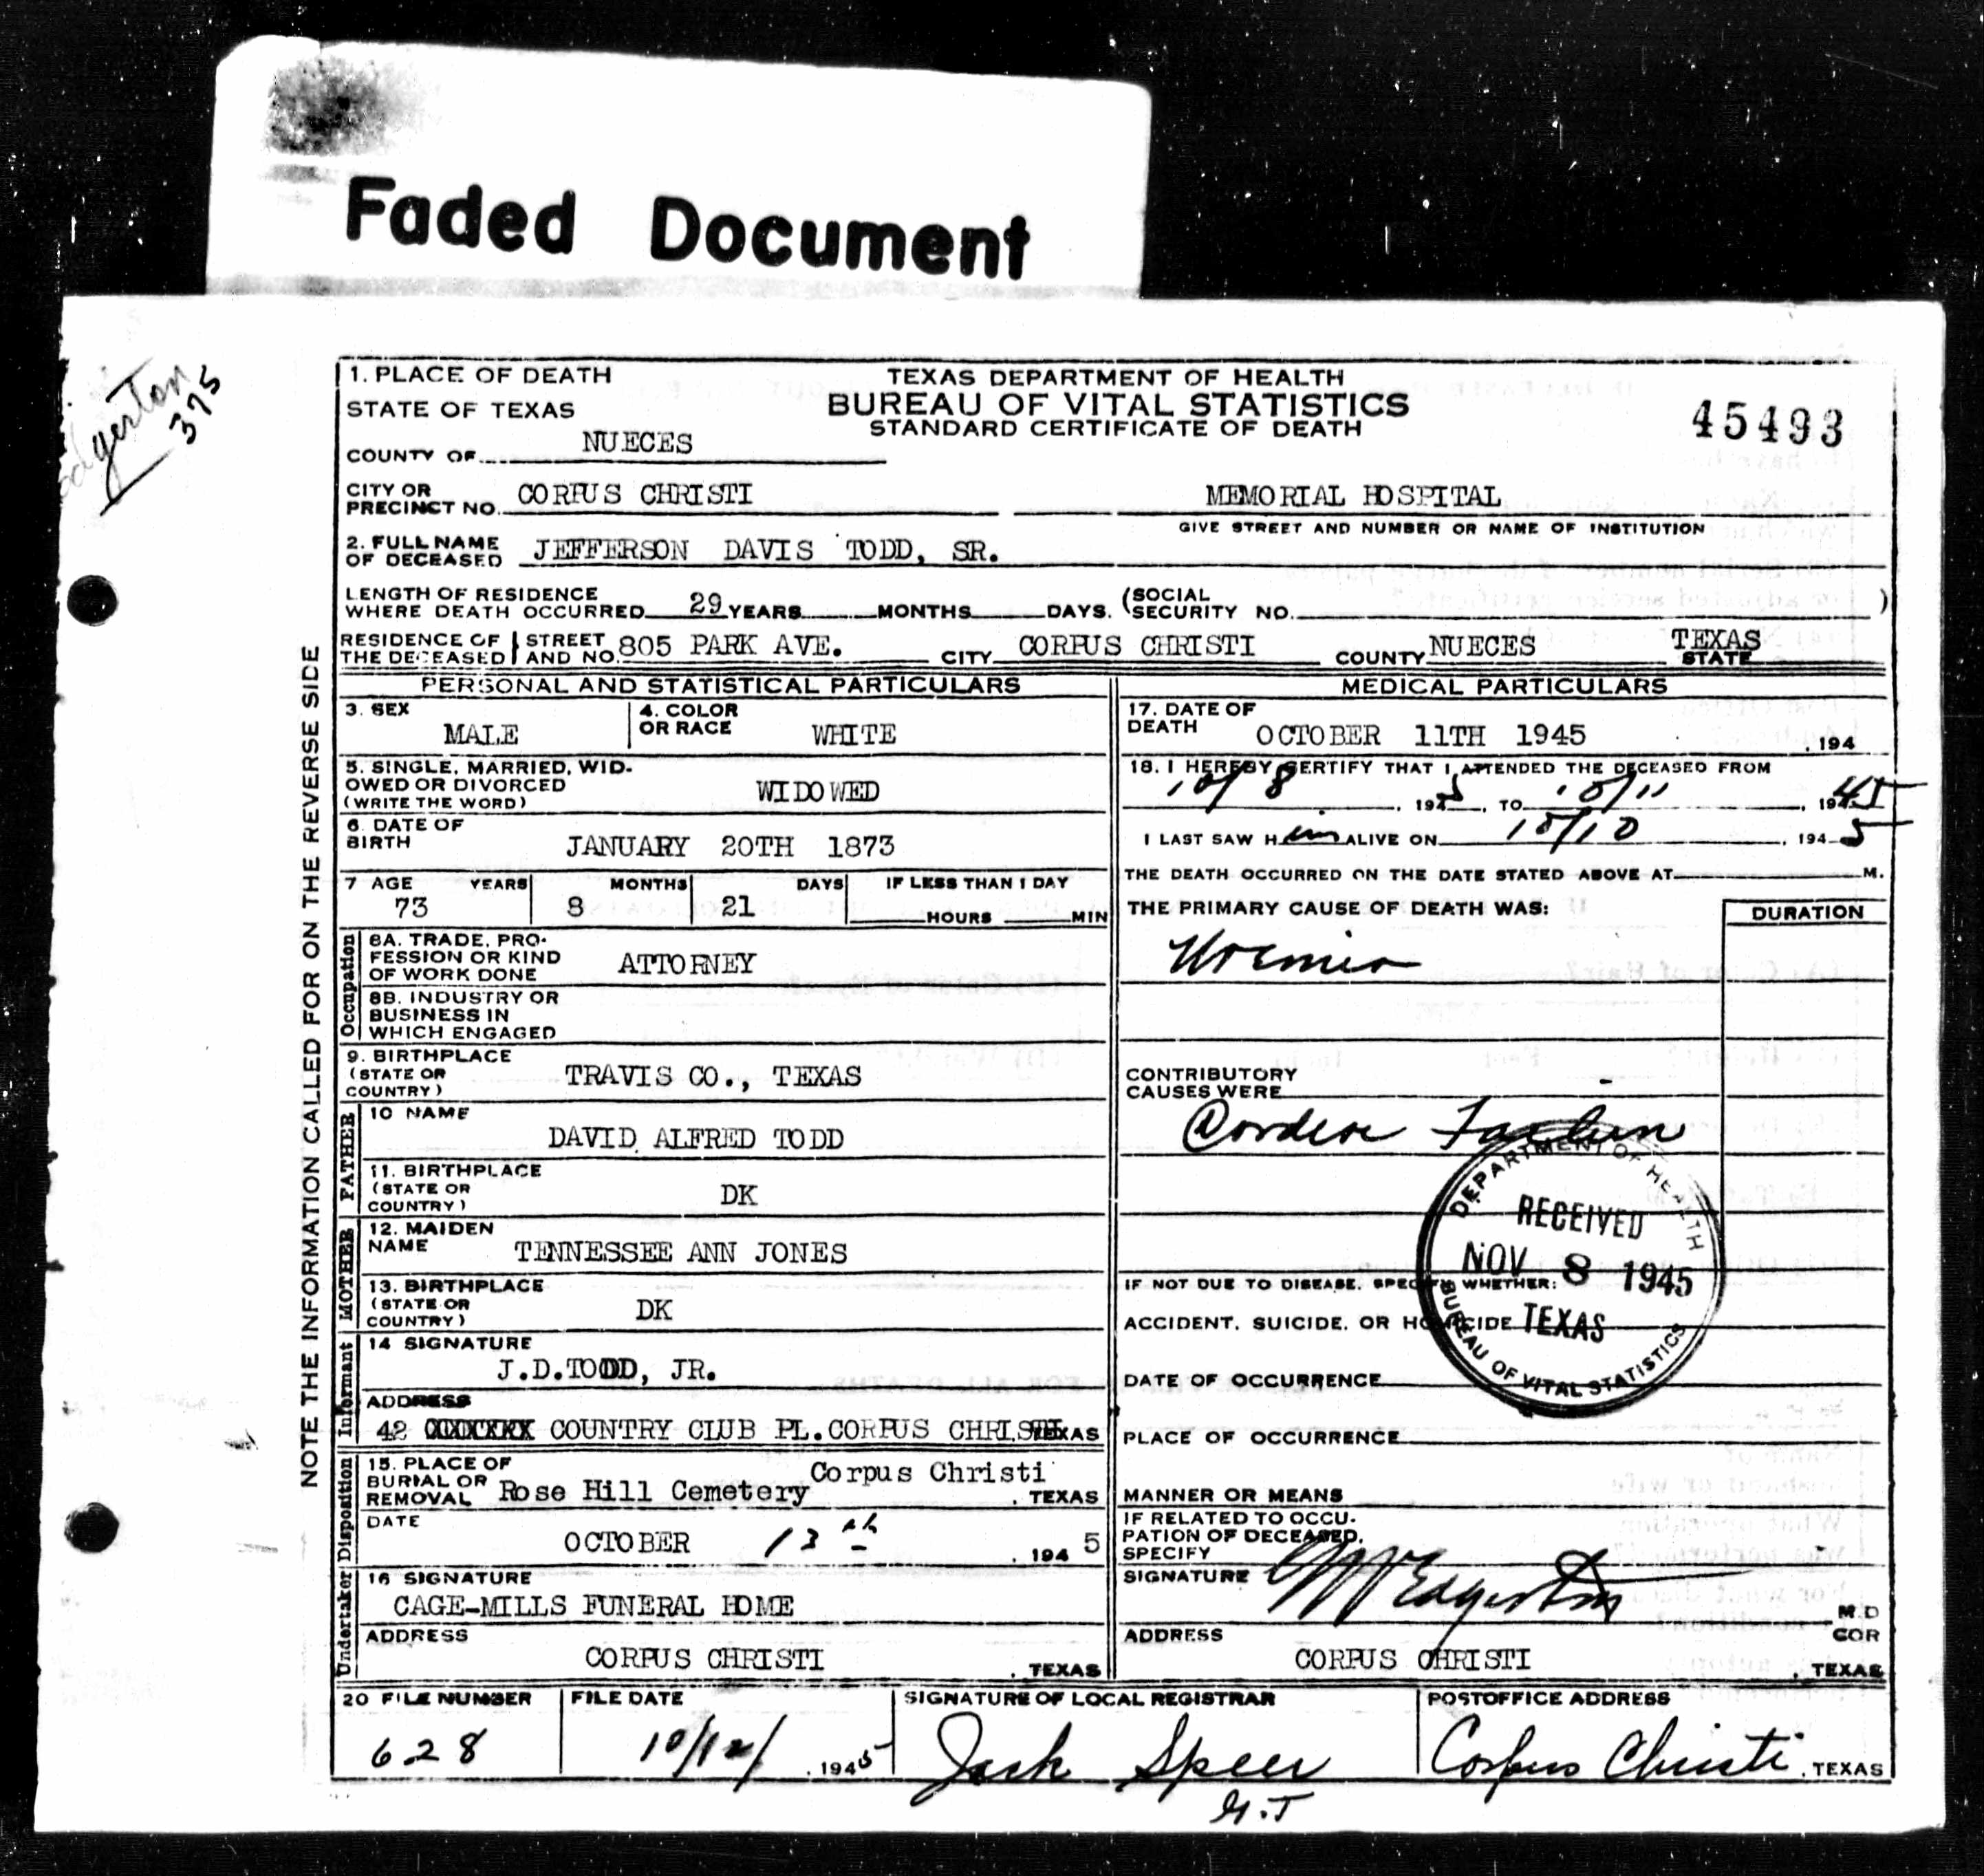 Faded Document
Edgerton
375
NOTE THE INFORMATION CALLED FOR ON THE REVERSE SIDE
1. PLACE OF DEATH
STATE OF TEXAS
COUNTY OF NUECES
TEXAS DEPARTMENT OF HEALTH
BUREAU OF VITAL STATISTICS
STANDARD CERTIFICATE OF DEATH
45493
CITY OR
PRECINCT NO. CORPUS CHRISTI
MEMORIAL HOSPITAL
GIVE STREET AND NUMBER OR NAME OF INSTITUTION
2. FULL NAME
OF DECEASED JEFFERSON DAVIS TODD, SR.
LENGTH OF RESIDENCE
WHERE DEATH OCCURRED 29 YEARS MONTHS DAYS.
(SOCIAL
SECURITY NO. )
RESIDENCE OF
THE DECEASED
STREET
AND NO. 805 PARK AVE. CITY CORPUS CHRISTI COUNTY NUECES TEXAS
STATE
PERSONAL AND STATISTICAL PARTICULARS
3. SEX
MALE
4. COLOR
OR RACE WHITE
5. SINGLE, MARRIED, WID-
OWED OR DIVORCED
(WRITE THE WORD)
WIDOWED
6. DATE OF
BIRTH JANUARY 20TH 1873
7 AGE YEARS MONTHS DAYS IF LESS THAN 1 DAY
73 8 21 HOURS MIN
Occupation
8A. TRADE, PRO-
FESSION OR KIND
OF WORK DONE
ATTORNEY
8B. INDUSTRY OR
BUSINESS IN
WHICH ENGAGED
9. BIRTHPLACE
(STATE OR
COUNTRY)
TRAVIS CO., TEXAS
FATHER
10 NAME
DAVID ALFRED TODD
11. BIRTHPLACE
(STATE OR
COUNTRY)
DK
MOTHER
12. MAIDEN
NAME TENNESSEE ANN JONES
13. BIRTHPLACE
(STATE OR
COUNTRY)
DK
Informant
14 SIGNATURE
J.D.TODD, JR.
ADDRESS
42 XXXXXXX COUNTRY CLUB PL.CORPUS CHRISTI TEXAS
Disposition
15. PLACE OF
BURIAL OR
REMOVAL Rose Hill Cemetery Corpus Christi , TEXAS
DATE
OCTOBER 13th , 194 5
Undertaker
16 SIGNATURE
CAGE-MILLS FUNERAL HOME
ADDRESS
CORPUS CHRISTI , TEXAS
MEDICAL PARTICULARS
17. DATE OF
DEATH OCTOBER 11TH 1945 , 194
18. I HEREBY CERTIFY THAT I ATTENDED THE DECEASED FROM
10/8 , 1945, TO 10/11 , 1945
I LAST SAW Him ALIVE ON 10/10 , 1945
THE DEATH OCCURRED ON THE DATE STATED ABOVE AT M.
THE PRIMARY CAUSE OF DEATH WAS:
DURATION
Uremia
CONTRIBUTORY
CAUSES WERE
DEPARTMENT OF HEALTH
RECEIVED
NOV 8 1945
TEXAS
BUREAU OF VITAL STATISTICS
IF NOT DUE TO DISEASE, SPECIFY WHETHER:
ACCIDENT, SUICIDE, OR HOMICIDE
DATE OF OCCURRENCE
PLACE OF OCCURRENCE
MANNER OR MEANS
IF RELATED TO OCCU-
PATION OF DECEASED,
SPECIFY
SIGNATURE Edgerton
M.D
COR
ADDRESS
CORPUS CHRISTI , TEXAS
20 FILE NUMBER FILE DATE SIGNATURE OF LOCAL REGISTRAR POSTOFFICE ADDRESS
628 10/12/ , 1945 Jack Speer Corpus Christi , TEXAS
G.T